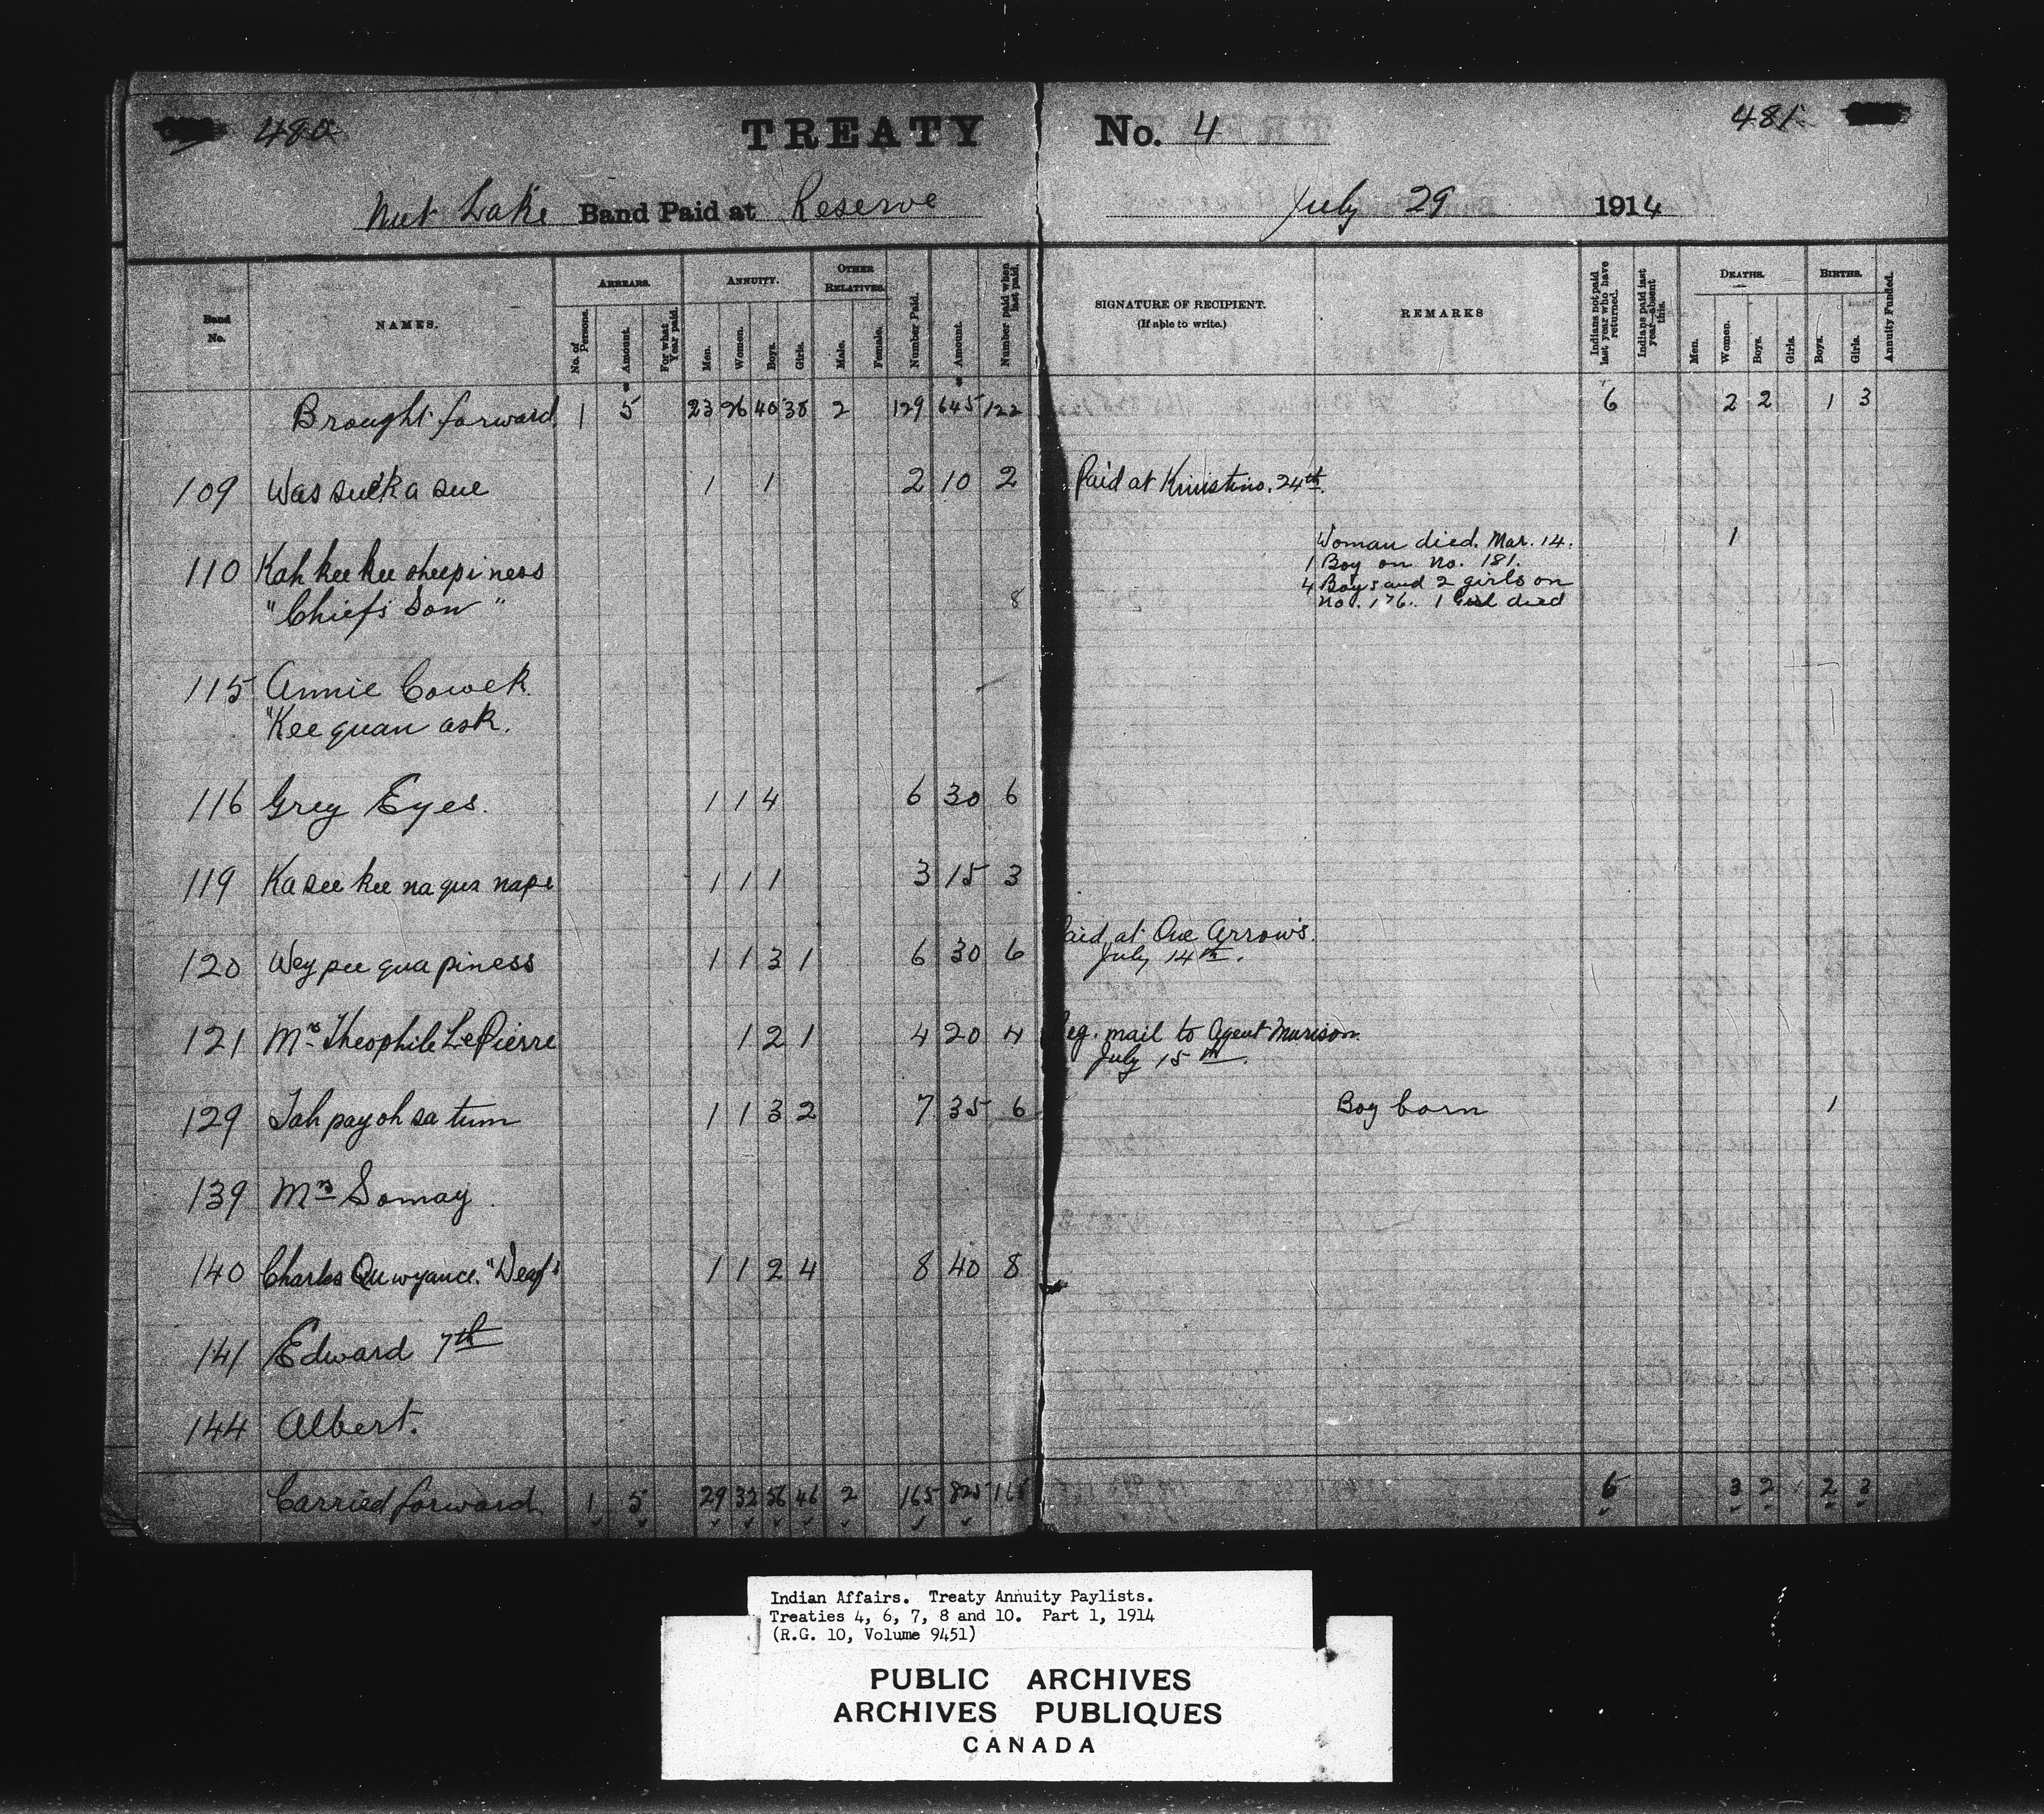 480 TREATY No. 4 481
Nut Lake Band Paid at Reserve July 29 1914
Band No. NAMES. ARREARS. ANNUITY. OTHER RELATIVES. Number Paid. Amount. Number paid when last paid. SIGNATURE OF RECIPIENT. (If able to write.) REMARKS Indians not paid last year who have returned. Indians paid last year—absent this. DEATHS. BIRTHS. Annuity Funded.
No. of Persons. Amount. For what Year paid. Men. Women. Boys. Girls. Male. Female. Men. Women. Boys. Girls. Boys. Girls.
Brought forward 1 5 23 26 40 38 2 129 645 122 6 2 2 1 3
109 Was suck a sue 1 1 2 10 2 Paid at Kinistino. 24th.
Woman died. Mar. 14. 1
110 Kah kee kee sheepi ness 1 Boy on No. 181.
"Chiefs Son" 8 4 Boys and 2 girls on
No. 176. 1 Girl died
115 Annie Cowek
"Kee quan ask.
116 Grey Eyes. 1 1 4 6 30 6
119 Ka see kee na qua nape 1 1 1 3 15 3
120 Wey pee qua piness 1 1 3 1 6 30 6 Paid at One Arrow's.
July 14th.
121 Mrs Theophile LePierre 1 2 1 4 20 4 Reg. mail to Agent Murison.
July 15th.
129 Tah pay oh sa tum 1 1 3 2 7 35 6 Boy born 1
139 Mrs Somay.
140 Charles Quwyance. "Deaf" 1 1 2 4 8 40 8
141 Edward 7th
144 Albert.
Carried forward 1 5 29 32 56 46 2 165 825 6 3 2 2 3
Indian Affairs. Treaty Annuity Paylists.
Treaties 4, 6, 7, 8 and 10. Part 1, 1914
(R.G. 10, Volume 9451)
PUBLIC ARCHIVES
ARCHIVES PUBLIQUES
CANADA